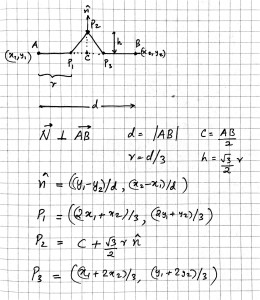 n̂
P2
h
A
B
(x1,y1)
(x2,y2)
P1
C
P3
r
d
N⃗ ⊥ AB⃗
d = |AB|
C = AB/2
r = d/3
h = √3/2 r
n̂ = ((y1-y2)/d, (x2-x1)/d)
P1 = ((2x1+x2)/3, (2y1+y2)/3)
P2 = C + √3/2 r n̂
P3 = ((x1+2x2)/3, (y1+2y2)/3)